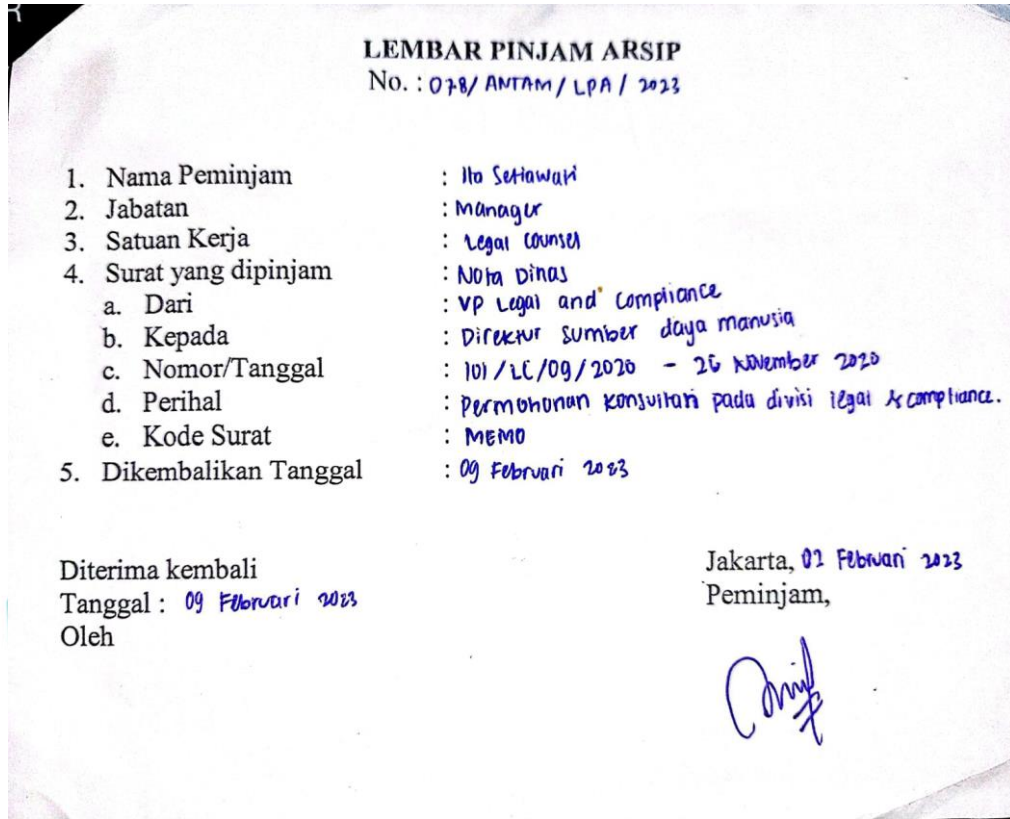 LEMBAR PINJAM ARSIP
No. : 078/ ANTAM / LPA / 2023
1. Nama Peminjam : Ita Setiawati
2. Jabatan : Manager
3. Satuan Kerja : Legal Counsel
4. Surat yang dipinjam : Nota Dinas
a. Dari : VP Legal and Compliance
b. Kepada : Direktur sumber daya manusia
c. Nomor/Tanggal : 101/LC/09/2020 - 26 November 2020
d. Perihal : Permohonan konsultan pada divisi legal & compliance.
e. Kode Surat : MEMO
5. Dikembalikan Tanggal : 09 Februari 2023
Diterima kembali
Tanggal : 09 Februari 2023
Oleh
Jakarta, 02 Februari 2023
Peminjam,